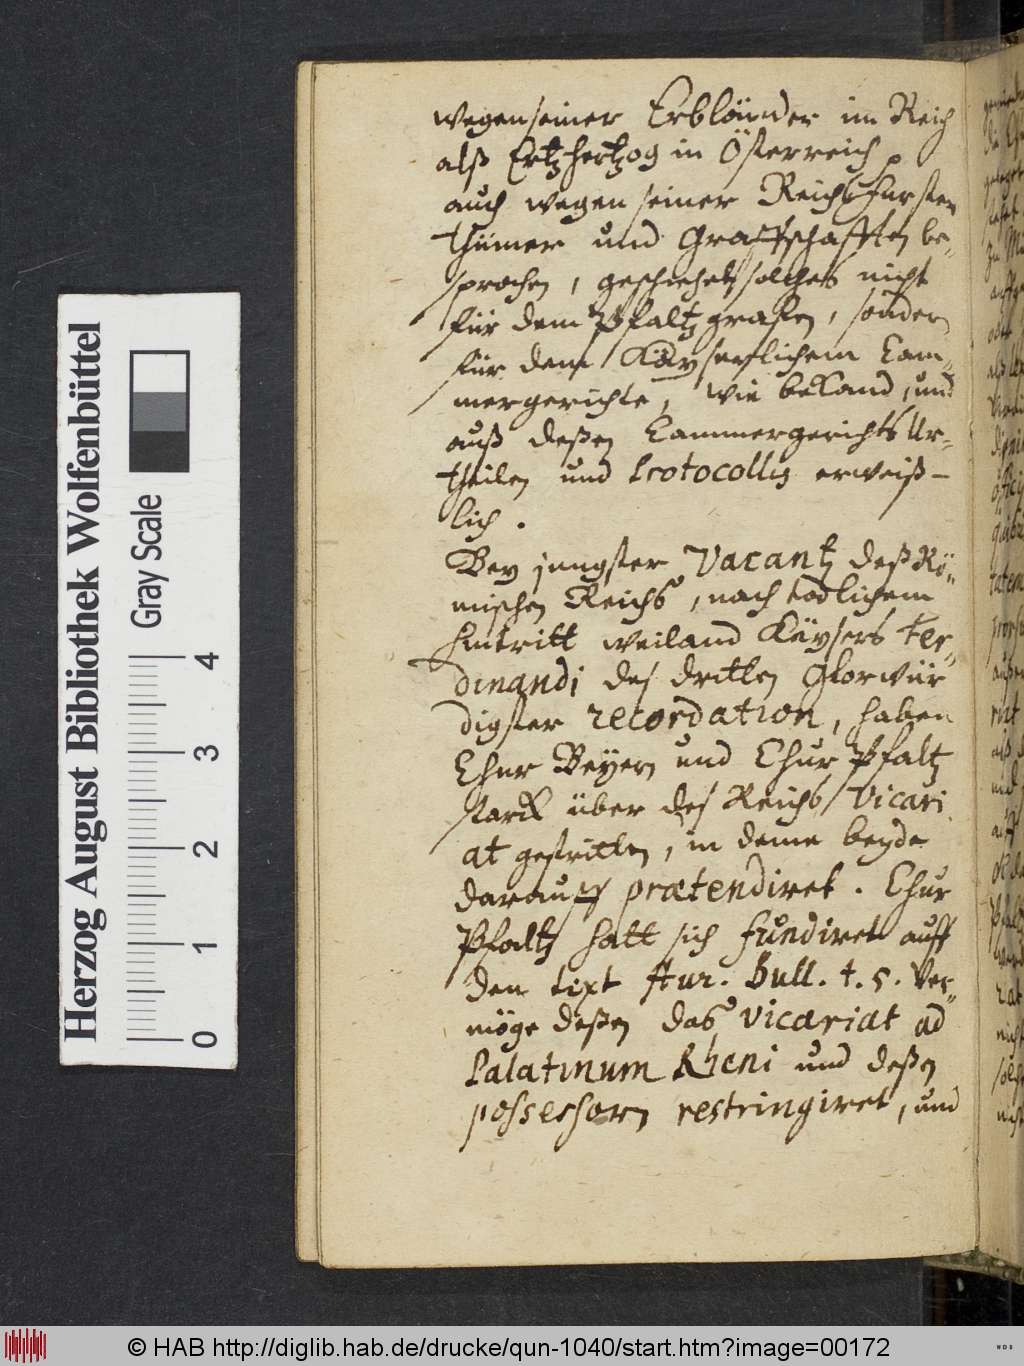 wegen seiner Erbländer im Reich
alß Ertzhertzog in Österreich,
auch wegen seiner Reichsfursten
thümer und Graffschafften be-
sprochen, geschiehet solches nicht
für dem Pfaltzgrafen, sondern
für dem Käyserlichem Cam-
mergerichte, wie bekand, und
auß deßen Cammergerichts Ur-
theilen und Protocollis erweiß-
lich.
Bey jungster Vacantz deß Rö-
mischen Reichs, nach todlichem
hintritt weiland Käysers Fer-
dinandi des dritten Glorwür
digster recordation, haben
Chur Beyern und Chur Pfaltz
starck über des Reichs Vicari
at gestritten, in deme beyde
darauff prætendiret. Chur
Pfaltz hatt sich fundiret auff
den text Aur. Bull. t. 5. Ver-
möge deßen das vicariat ad
Palatinum Rheni und deßen
possessorn restringiret, und
Herzog August Bibliothek Wolfenbüttel
Gray Scale
0 1 2 3 4
© HAB http://diglib.hab.de/drucke/qun-1040/start.htm?image=00172